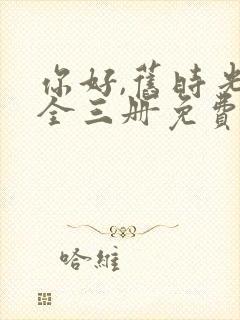 你好,舊時光
全三册免費
哈維